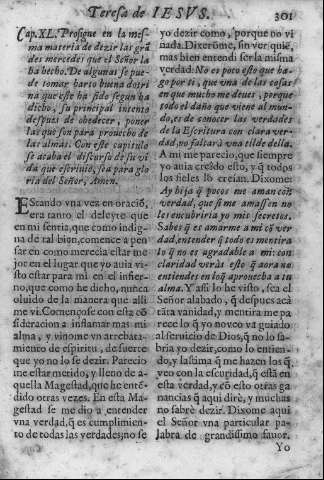 Teresa de IESVS. 301
Cap. XL. Prosigue en la mes-
ma materia de dezir las grã
des mercedes que el Señor la
ha hecho. De algunas se pue-
de tomar harto buena dotri
na que este ha sido segun ha
dicho, su principal intento
despues de obedecer, poner
las que son para prouecho de
las almas. Con este capitulo
se acaba el discurso de su vi
da que escriuio, sea para glo
ria del Señor, Amen.
EStando vna vez en oraciõ,
era tanto el deleyte que
en mi sentia, que como indig-
na de tal bien, comence a pen
sar en como merecia estar me
jor en el lugar que yo auia vi-
sto estar para mi en el infier-
no, que como he dicho, nunca
oluido de la manera que alli
me vi. Començose con esta cõ
sideracion a inflamar mas mi
alma, y vinome vn arrebata-
miento de espiritu, de suerte
que yo no lo se dezir. Parecio
me estar metido, y lleno de a-
quella Magestad, que he entẽ-
dido otras vezes. En esta Ma-
gestad se me dio a entender
vna verdad, q̃ es cumplimien-
to de todas las verdades; no se
yo dezir como, porque no vi
nada. Dixerõme, sin ver quiẽ,
mas bien entendi ser la misma
verdad: No es poco esto que ha-
go por ti, que vna de las cosas es
en que mucho me deues, porque
todo el daño que viene al mun-
do, es de conocer las verdades
de la Escritura con clara ver-
dad, no faltarà vna tilde della.
A mi me pareciò, que siempre
yo auia creìdo esto, y q̃ todos
los fieles lo creìan. Dixome:
Ay hija q̃ pocos me aman cõ
verdad, que si me amassen no
les encubriria yo mis secretos.
Sabes q̃ es amarme a mi cõ ver
dad, entender q̃ todo es mentira
lo q̃ no es agradable a mi: con
claridad veràs esto q̃ aora no
entiendes en lo q̃ aprouecha a tu
alma. Y assi lo he visto, sea el
Señor alabado, q̃ despues acà
tãta vanidad, y mentira me pa
rece lo q̃ yo no veo va guiado
al seruicio de Dios, q̃ no lo sa-
bria yo dezir, como lo entien-
do, y lastima q̃ me hazen los q̃
veo con la escuridad, q̃ estã en
esta verdad, y cõ esto otras ga
nancias q̃ aqui dirè, y muchas
no sabrè dezir. Dixome aqui
el Señor vna particular pa-
labra de grandissimo fauor.
Yo